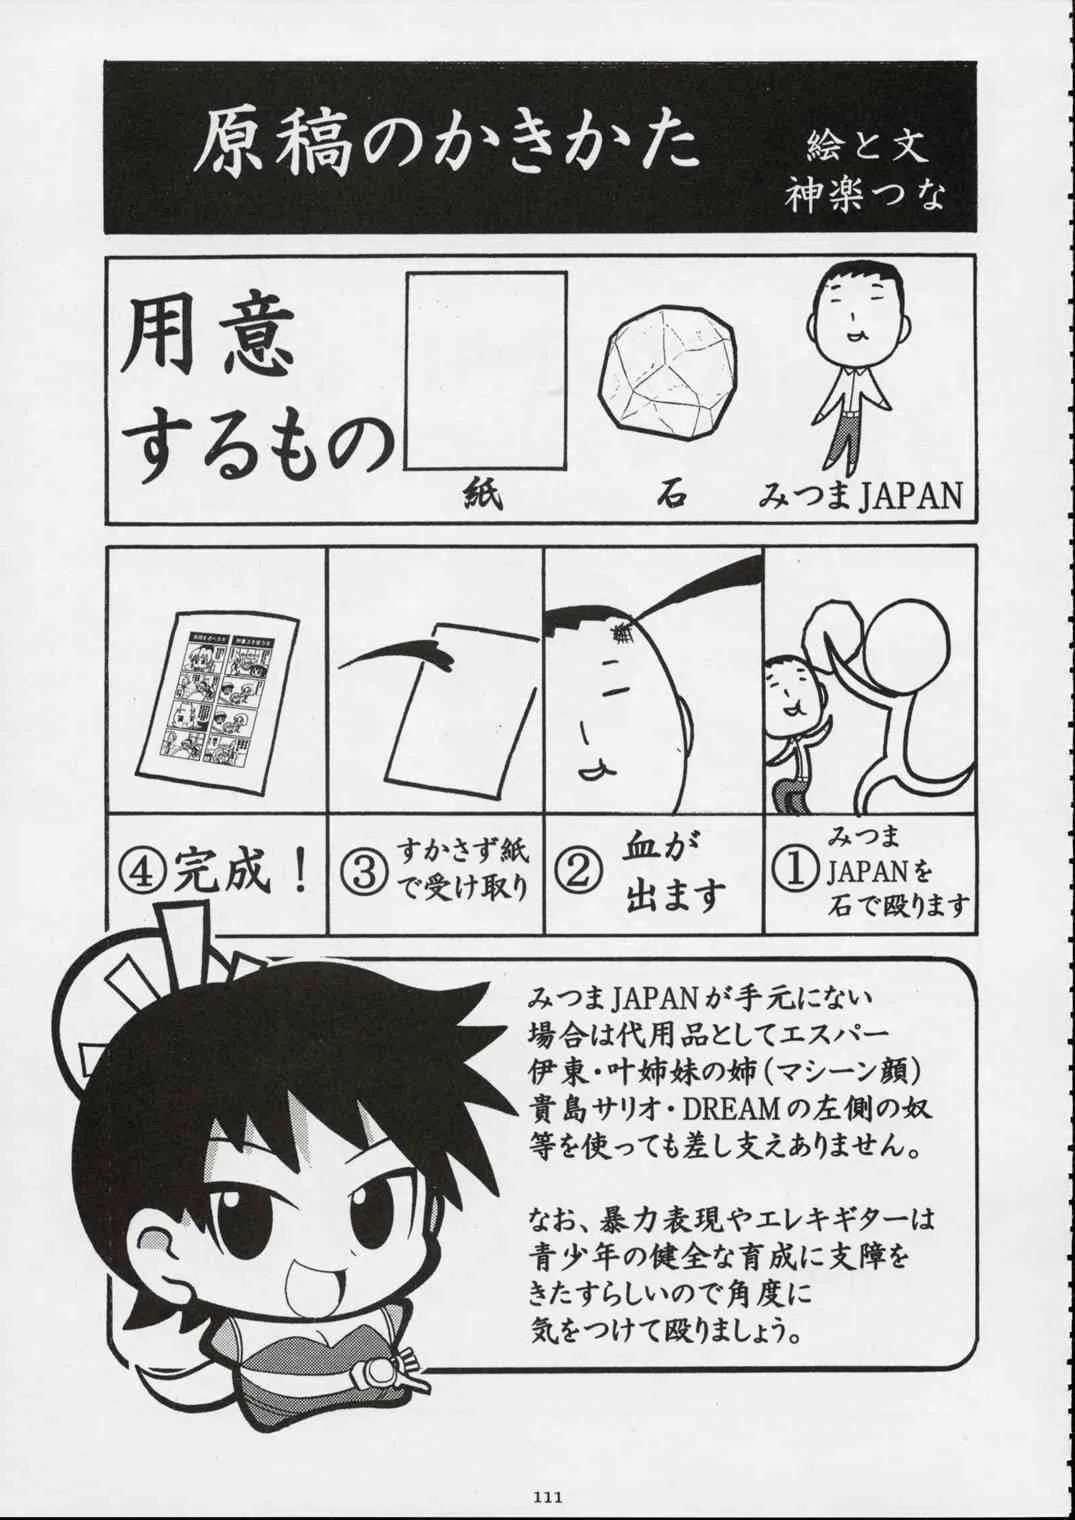 原稿のかきかた
絵と文
神楽つな
用意
するもの
紙
石
みつまJAPAN
①みつま
JAPANを
石で殴ります
②血が
出ます
③すかさず紙
で受け取り
④完成！
みつまJAPANが手元にない
場合は代用品としてエスパー
伊東・叶姉妹の姉(マシーン顔)
貴島サリオ・DREAMの左側の奴
等を使っても差し支えありません。
なお、暴力表現やエレキギターは
青少年の健全な育成に支障を
きたすらしいので角度に
気をつけて殴りましょう。
111